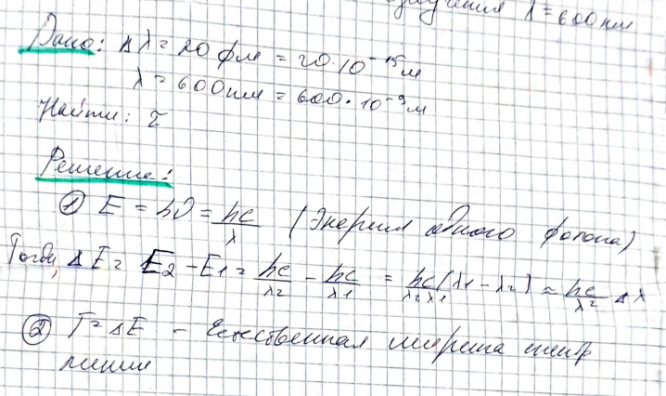 излучения λ = 600 нм
Дано: Δλ = 20 фм = 20·10⁻¹⁵ м
λ = 600 нм = 600·10⁻⁹ м
Найти: τ
Решение:
① E = hν = hc/λ (Энергия одного фотона)
Тогда, ΔE = E₂ - E₁ = hc/λ₂ - hc/λ₁ = hc/λ₂λ₁ (λ₁ - λ₂) ≈ hc/λ² Δλ
② Г = ΔE - Естественная ширина спектр
линии